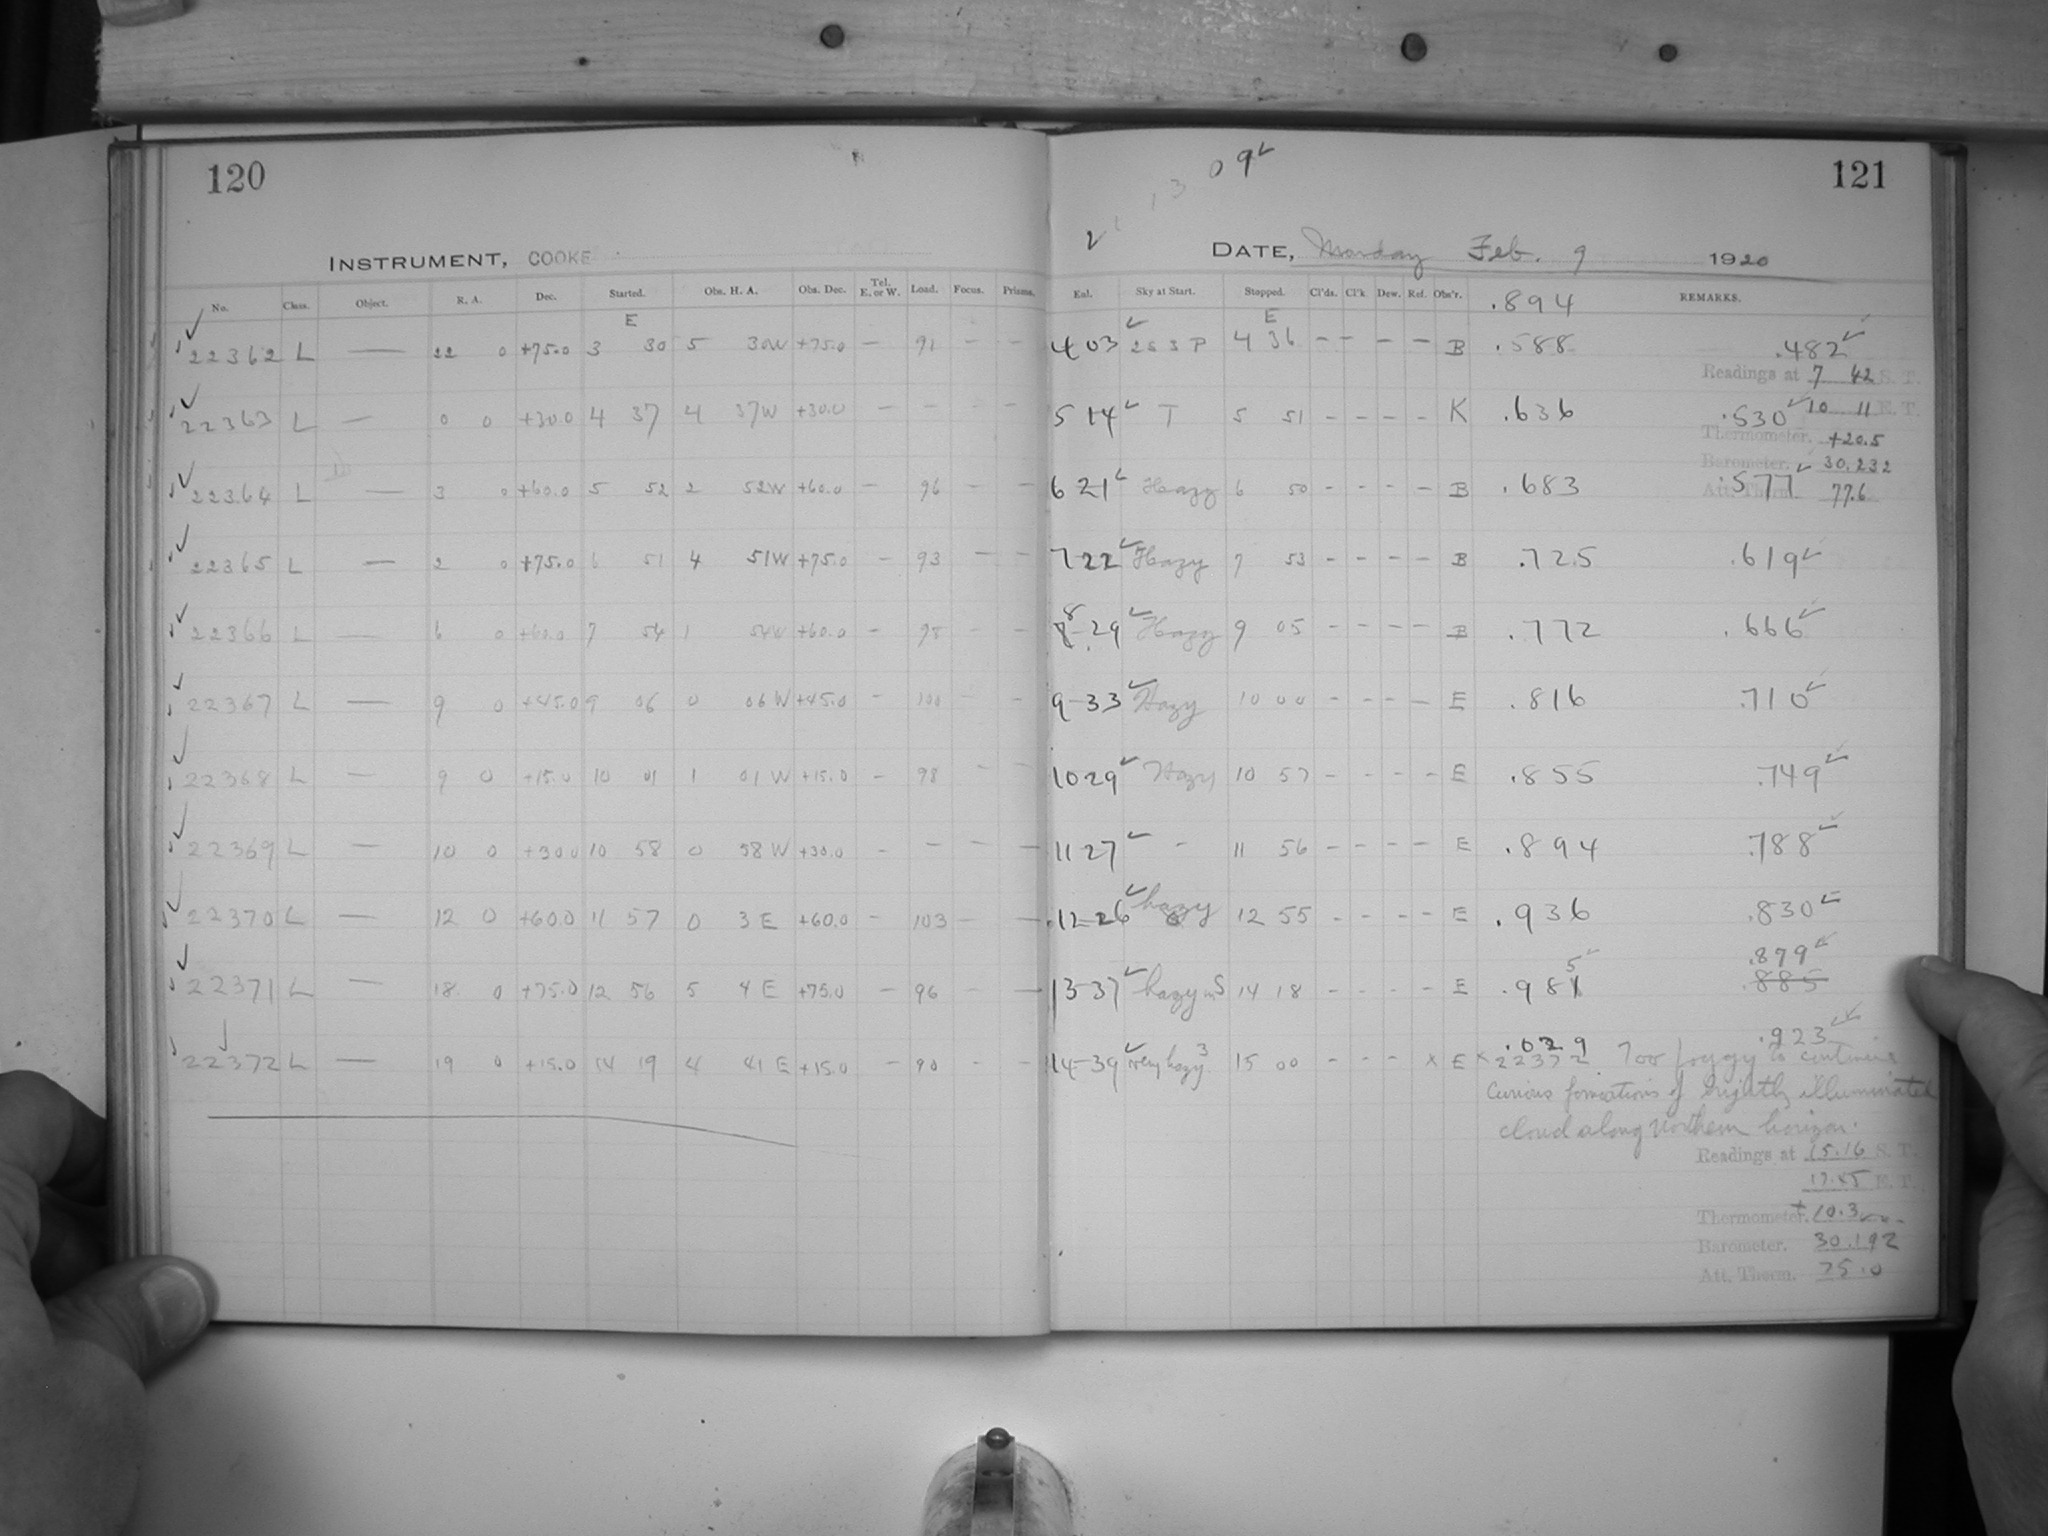 120
INSTRUMENT, COOKE
No. Class. Object. R. A. Dec. Started. Obs. H. A. Obs. Dec. Tel. E. or W. Load. Focus. Prisms.
E
22362 L — 22 0 +75.0 3 30 5 30W +75.0 — 91 — —
22363 L — 0 0 +30.0 4 37 4 37W +30.0 — — — —
22364 L — 3 0 +60.0 5 52 2 52W +60.0 — 96 — —
22365 L — 2 0 +75.0 6 51 4 51W +75.0 — 93 — —
22366 L — 6 0 +60.0 7 54 1 54W +60.0 — 95 — —
22367 L — 9 0 +45.0 9 06 0 06W +45.0 — 100 — —
22368 L — 9 0 +15.0 10 01 1 01W +15.0 — 98 — —
22369 L — 10 0 +30.0 10 58 0 58W +30.0 — — — —
22370 L — 12 0 +60.0 11 57 0 3E +60.0 — 103 — —
22371 L — 18 0 +75.0 12 56 5 4E +75.0 — 96 — —
22372 L — 19 0 +15.0 14 19 4 41E +15.0 — 90 — —
09✓
121
DATE, Monday Feb. 9 1920
Eal. Sky at Start. Stopped. Cl'ds. Cl'k. Dew. Ref. Obs'r. .894 REMARKS.
E
403✓ 2S3P 4 36 — — — — B .588 .482✓
Readings at 7 42 S. T.
514✓ T 5 51 - - - - K .636 .530✓ 10 11 E. T.
Thermometer. +20.5
Barometer. 30.232
621✓ Hazy 6 50 - - - - B .683 .577✓ Att. Therm. 77.6
722✓ Hazy 7 53 - - - - B .725 .619✓
8-29✓ Hazy 9 05 - - - - B .772 .666✓
9-33✓ Hazy 10 00 - - - - E .816 .710✓
1029✓ Hazy 10 57 - - - - E .855 .749✓
1127✓ - 11 56 - - - - E .894 .788✓
12-26✓ hazy 12 55 - - - - E .936 .830✓
.879✓
13-37✓ hazy in S 14 18 - - - - E .981 5 .885
.029 .923✓
14-39✓ very hazy 3 15 00 - - - x E x 22372. Too foggy to continue
Curious formations of brightly illuminated
cloud along Northern horizon.
Readings at 15.16 S. T.
17.45 E. T.
Thermometer. +10.3
Barometer. 30.192
Att. Therm. 75.0